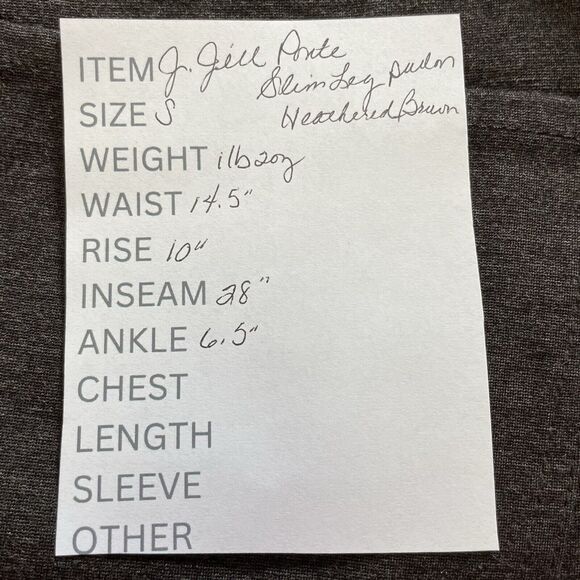 ITEM J. Jill Ponte
Slim Leg Pull on
SIZE S Heathered Brown
WEIGHT 1lb 2oz
WAIST 14.5"
RISE 10"
INSEAM 28"
ANKLE 6.5"
CHEST
LENGTH
SLEEVE
OTHER